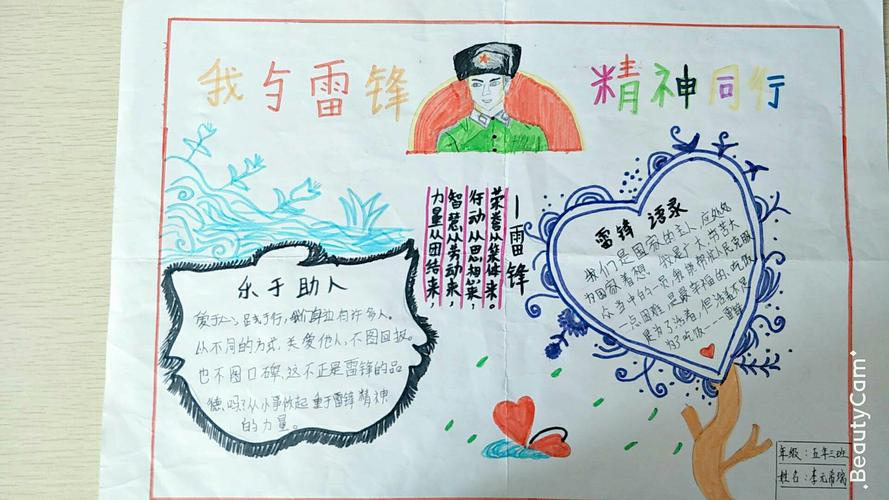 我与雷锋
精神同行
乐于助人
爱于心,践于行,我们身边有许多人。
从不同的方式,关爱他人,不图回报。
也不图口碑,这不正是雷锋的品
德吗?从小事做起 重于雷锋精神
的力量。
力量从团结来,
智慧从劳动来,
行动从思想来,
荣誉从集体来。
—雷锋
雷锋 语录
我们是国家的主人,应处处
为国家着想,我是广大劳苦大
众当中的一员,我能帮助人民克服
一点困难,是最幸福的,吃饭
是为了活着,但活着不是
为了吃饭——雷锋
年级:五年三班
姓名:李元
BeautyCam